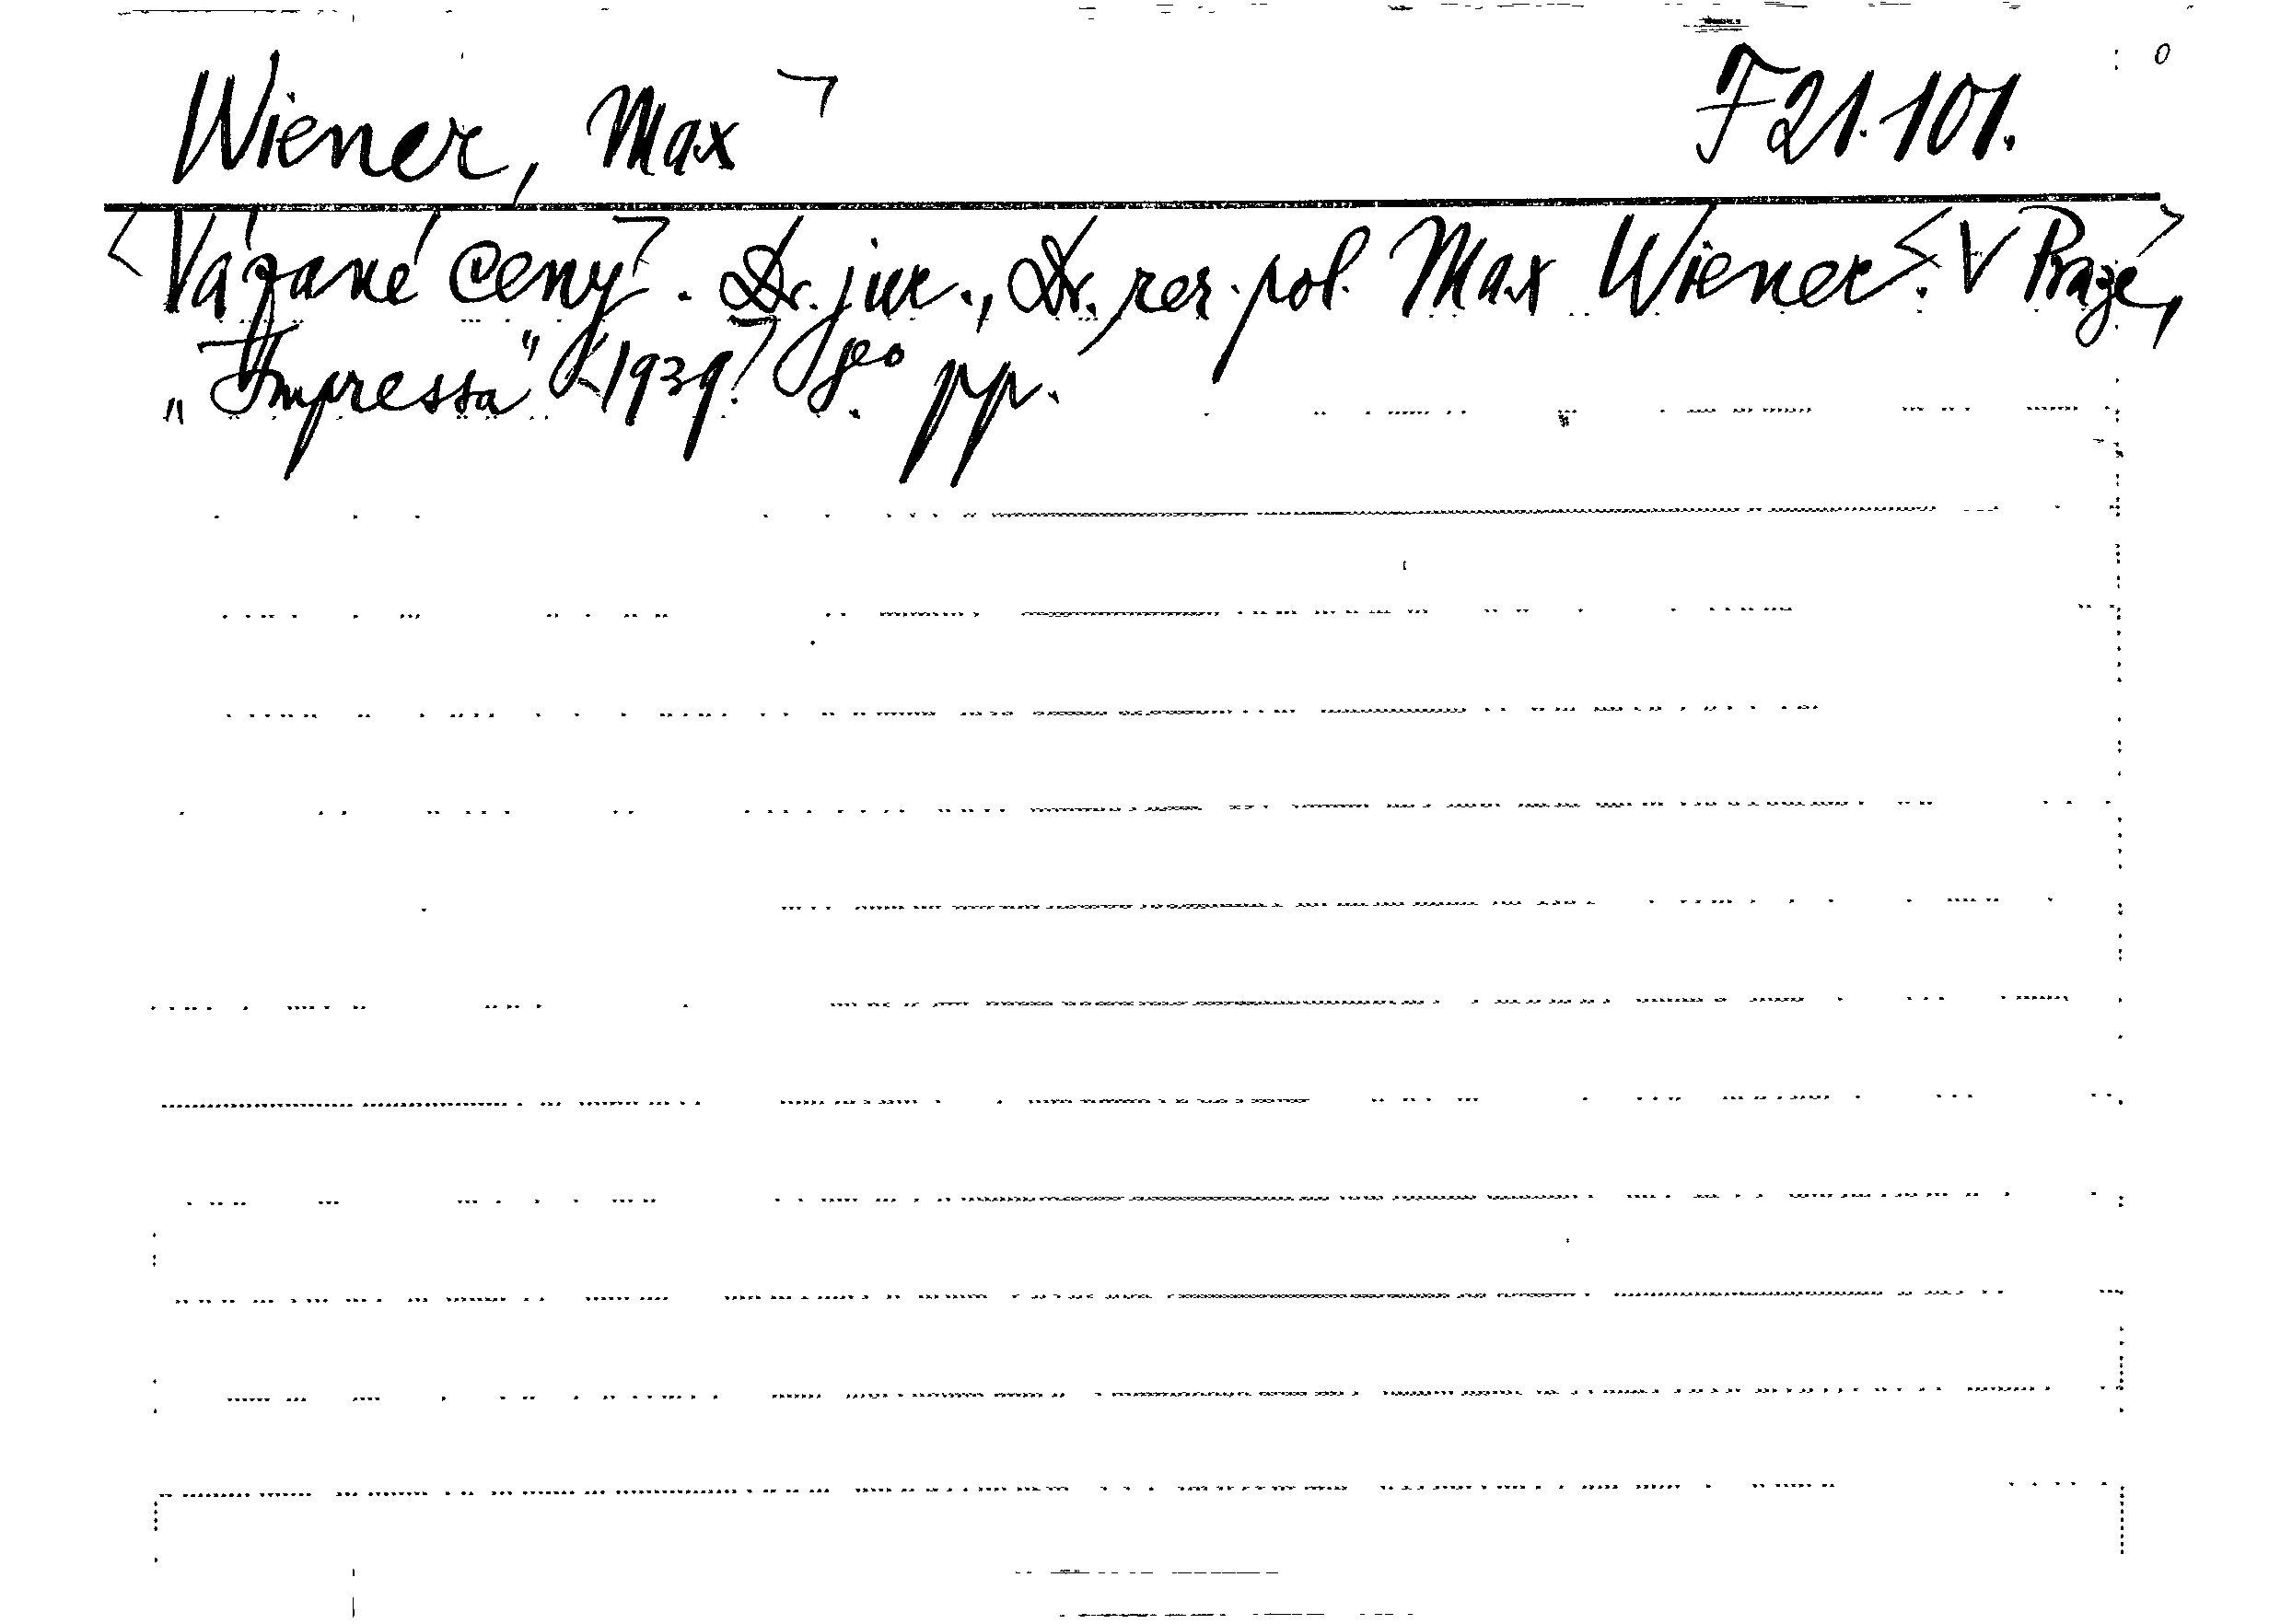 Wiener, Max ¬ F 21.101.
<Vázané ceny>. Dr. jur., Dr. rer. pol. Max Wiener. <V Praze,>
„Impressa" <1939.> 8° pp.